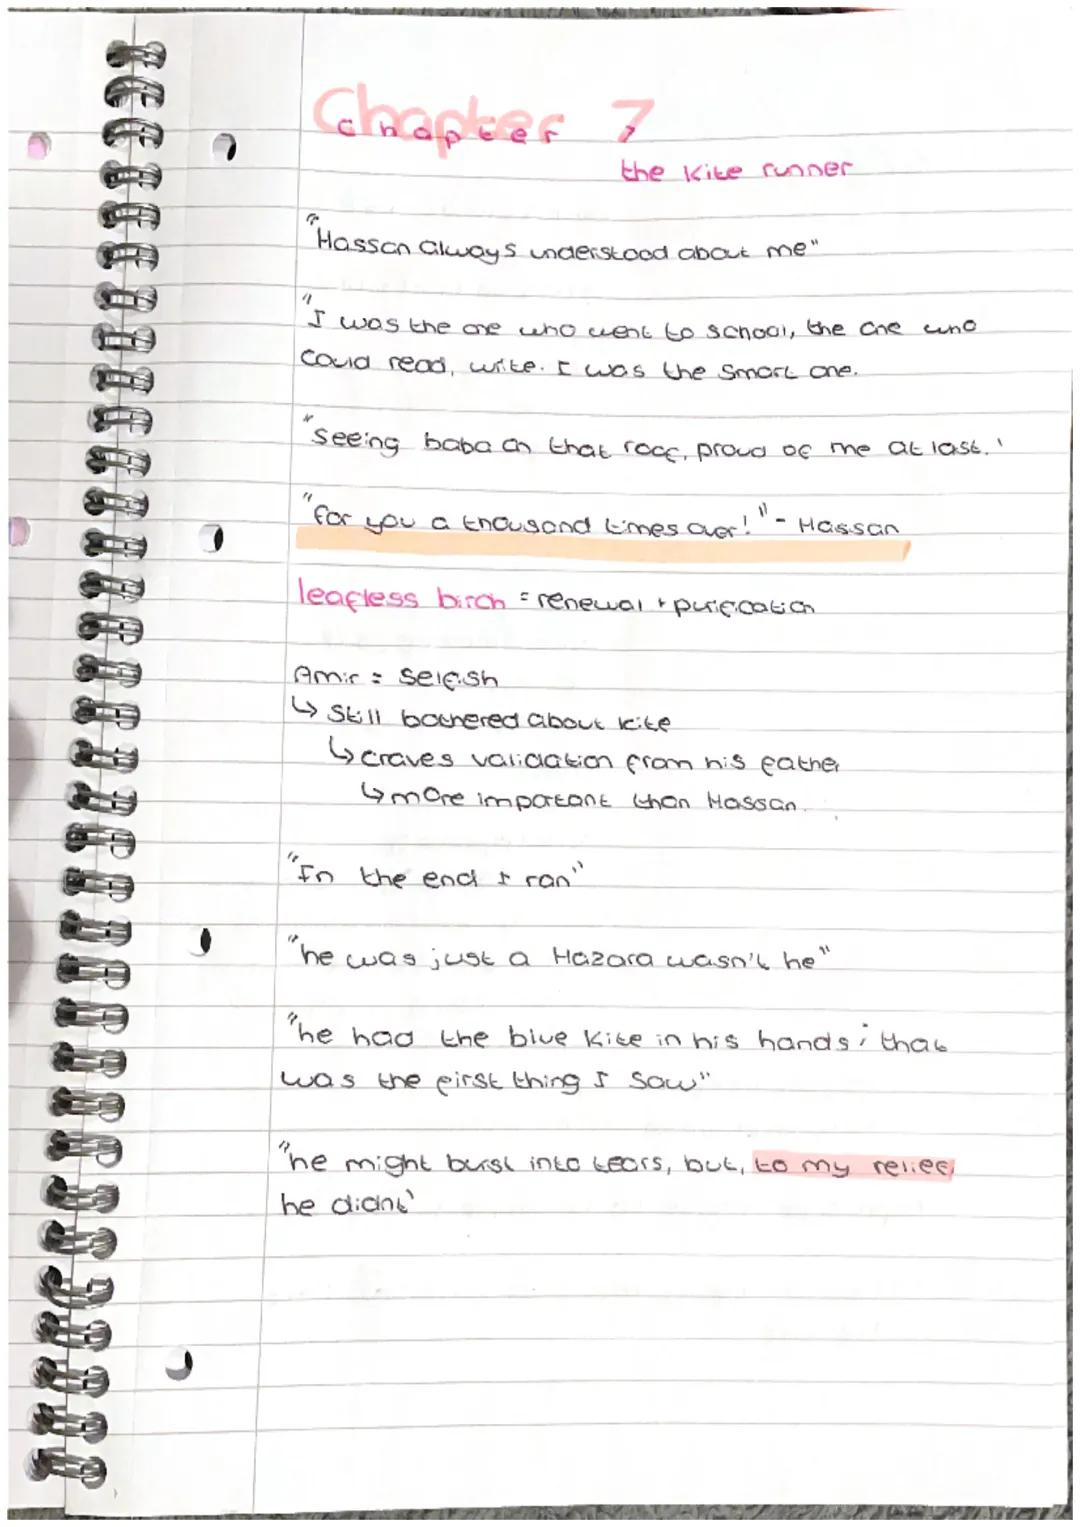 Chapter 7
the Kite runner
"Hassan always understood about me"
"I was the one who went to school, the one who
Could read, write. I was the smart one.
"seeing baba on that roof, proud of me at last.'
"for you a thousand times over!" - Hassan
leafless birch = renewal + purification
Amir = selfish
↳ Still bothered about kite
↳ craves validation from his father
↳ more important than Hassan.
"In the end I ran"
"he was just a Hazara wasn't he"
"he had the blue kite in his hands; that
was the first thing I saw"
"he might burst into tears, but, to my relief,
he didnt'